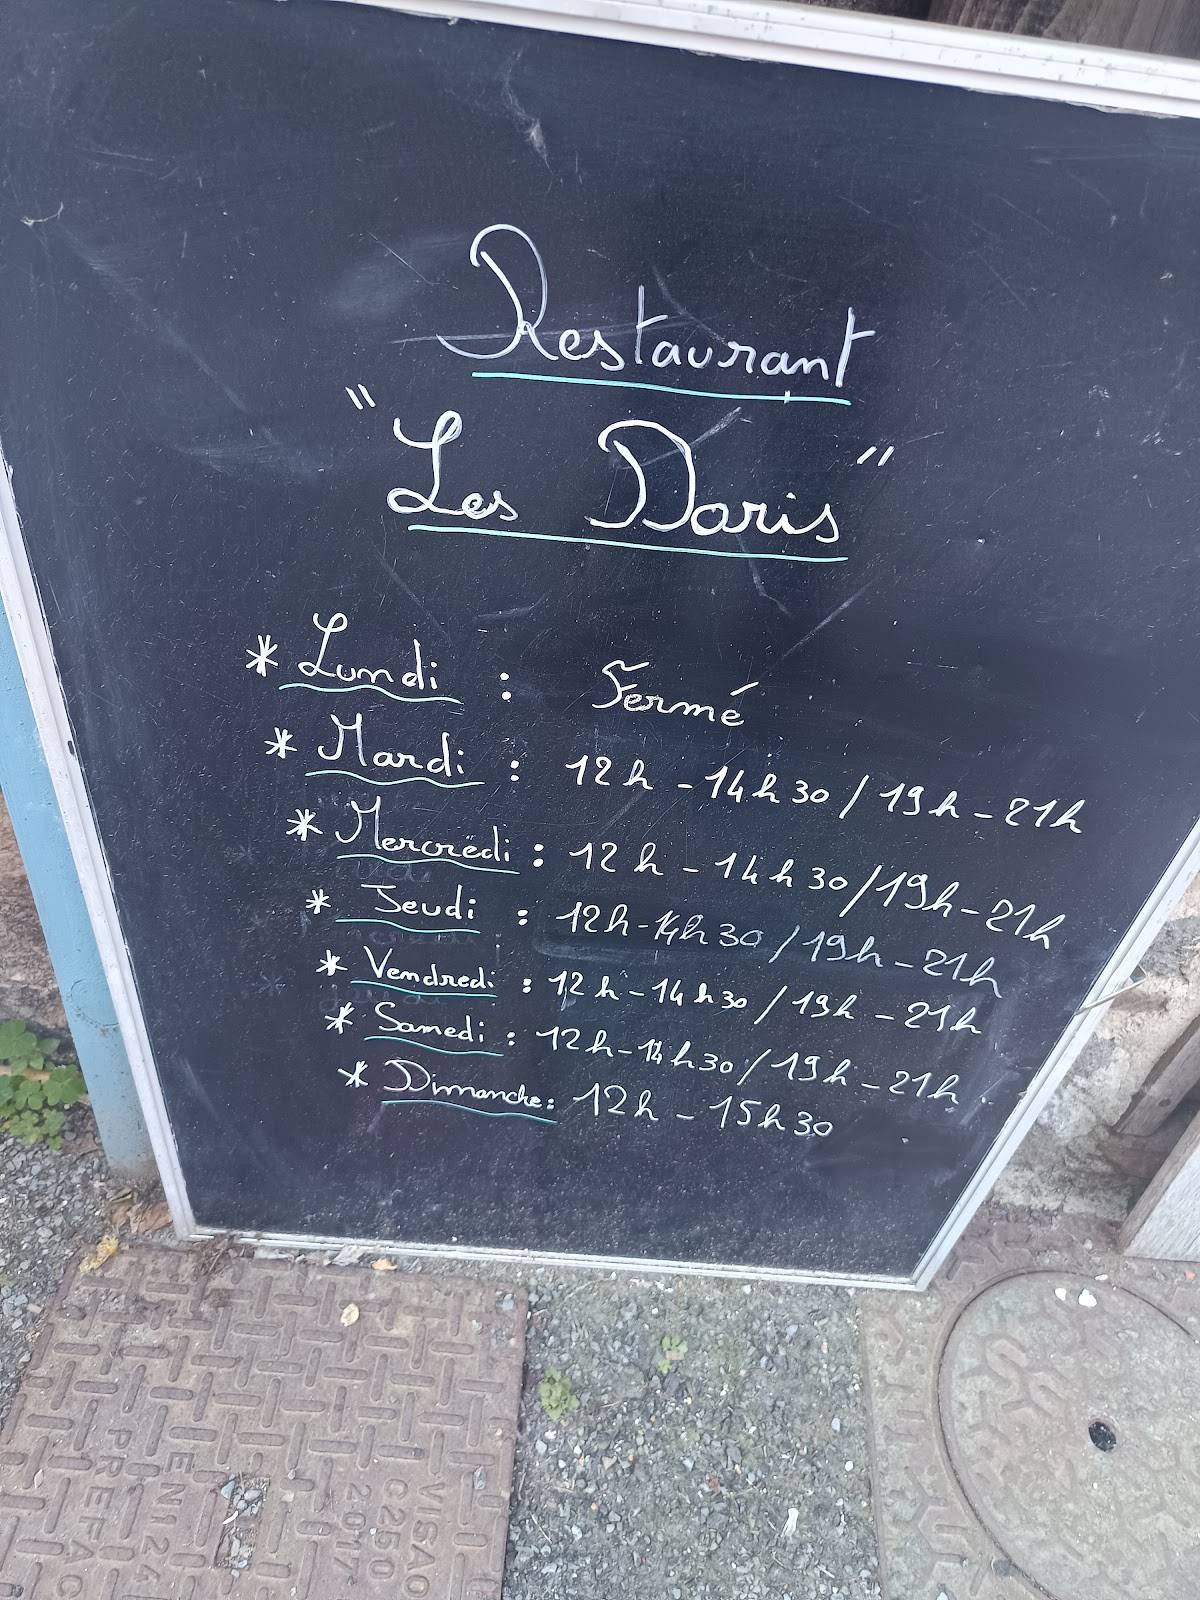 Restaurant
"Les Daris"
* Lundi : Fermé
* Mardi : 12h - 14h30 / 19h - 21h
* Mercredi : 12h - 14h30 / 19h - 21h
* Jeudi : 12h - 14h30 / 19h - 21h
* Vendredi : 12h - 14h30 / 19h - 21h
* Samedi : 12h - 14h30 / 19h - 21h.
* Dimanche : 12h - 15h30
VISAO
C250
2017
EN124
PREFAC